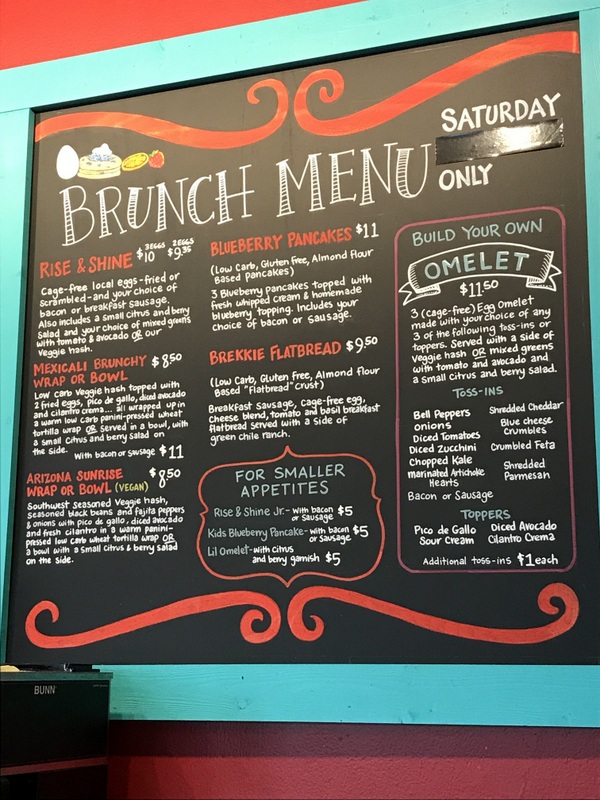 SATURDAY
ONLY
BRUNCH MENU
RISE & SHINE 3 EGGS $10 2 EGGS $9.35
Cage-free local eggs-fried or
Scrambled-and your choice of
bacon or breakfast sausage.
Also includes a small citrus and berry
Salad and your choice of mixed greens
with tomato & avocado OR our
Veggie hash.
MEXICALI BRUNCHY $8.50
WRAP OR BOWL
Low carb Veggie hash topped with
2 fried eggs, pico de gallo, diced avocado
and cilantro crema... all wrapped up in
a warm low carb panini-pressed wheat
tortilla wrap OR served in a bowl, with
a small citrus and berry salad on
the side. With bacon or sausage $11
ARIZONA SUNRISE $8.50
WRAP OR BOWL (VEGAN)
Southwest seasoned Veggie hash,
seasoned black beans and fajita peppers
& onions with pico de gallo, diced avocado
and fresh cilantro in a warm panini-
pressed low carb wheat tortilla wrap OR
a bowl with a small citrus & berry salad
on the side.
BLUEBERRY PANCAKES $11
(Low Carb, Gluten Free, Almond Flour
Based Pancakes)
3 Blueberry pancakes topped with
fresh whipped cream & homemade
blueberry topping. Includes your
choice of bacon or sausage.
BREKKIE FLATBREAD $9.50
(Low Carb, Gluten Free, Almond flour
Based "flatbread" Crust)
Breakfast sausage, cage-free egg,
cheese blend, tomato and basil breakfast
flatbread served with a side of
green chile ranch.
FOR SMALLER
APPETITES
Rise & Shine Jr.- With bacon $5
or Sausage
Kids Blueberry Pancake- With bacon $5
or sausage
Lil Omelet-with citrus
and berry garnish $5
BUILD YOUR OWN
OMELET
$11.50
3 (cage-free) Egg Omelet
made with your choice of any
3 of the following toss-ins or
toppers. Served with a side of
Veggie hash OR mixed greens
with tomato and avocado and
a small Citrus and berry salad.
TOSS-INS
Bell Peppers
onions
Diced Tomatoes
Diced Zucchini
Chopped Kale
marinated Artichoke
Hearts
Bacon or Sausage
Shredded Cheddar
Blue cheese
Crumbles
Crumbled Feta
Shredded
Parmesan
TOPPERS
Pico de Gallo Diced Avocado
Sour Cream Cilantro Crema
Additional toss-ins $1 each
BUNN